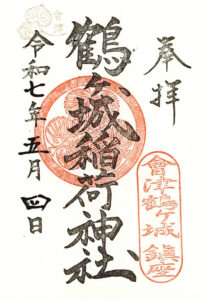 奉拝
會津鶴ヶ城鎮座
鶴ヶ城稲荷神社
令和七年五月四日